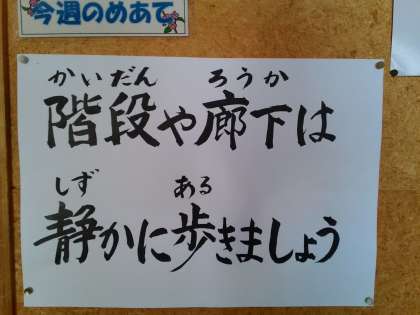 今週のめあて
かいだん ろうか
階段や廊下は
しず ある
静かに歩きましょう